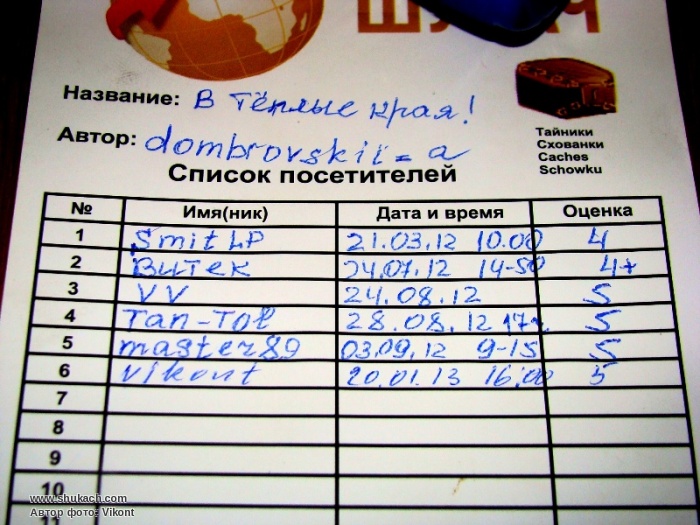 Название: В тёплые края!
Автор: dombrovskii-a
Тайники
Схованки
Caches
Schowku
Список посетителей
№ Имя(ник) Дата и время Оценка
1 SmitLP 21.03.12 10.00 4
2 Витек 24.07.12 14-50 4+
3 VV 24.08.12 5
4 Tan-Tol 28.08.12 5
5 master89 03.09.12 9-15 5
6 vikont 20.01.13 16.00 5
7
8
9
10
11
www.shukach.com
Автор фото: Vikont